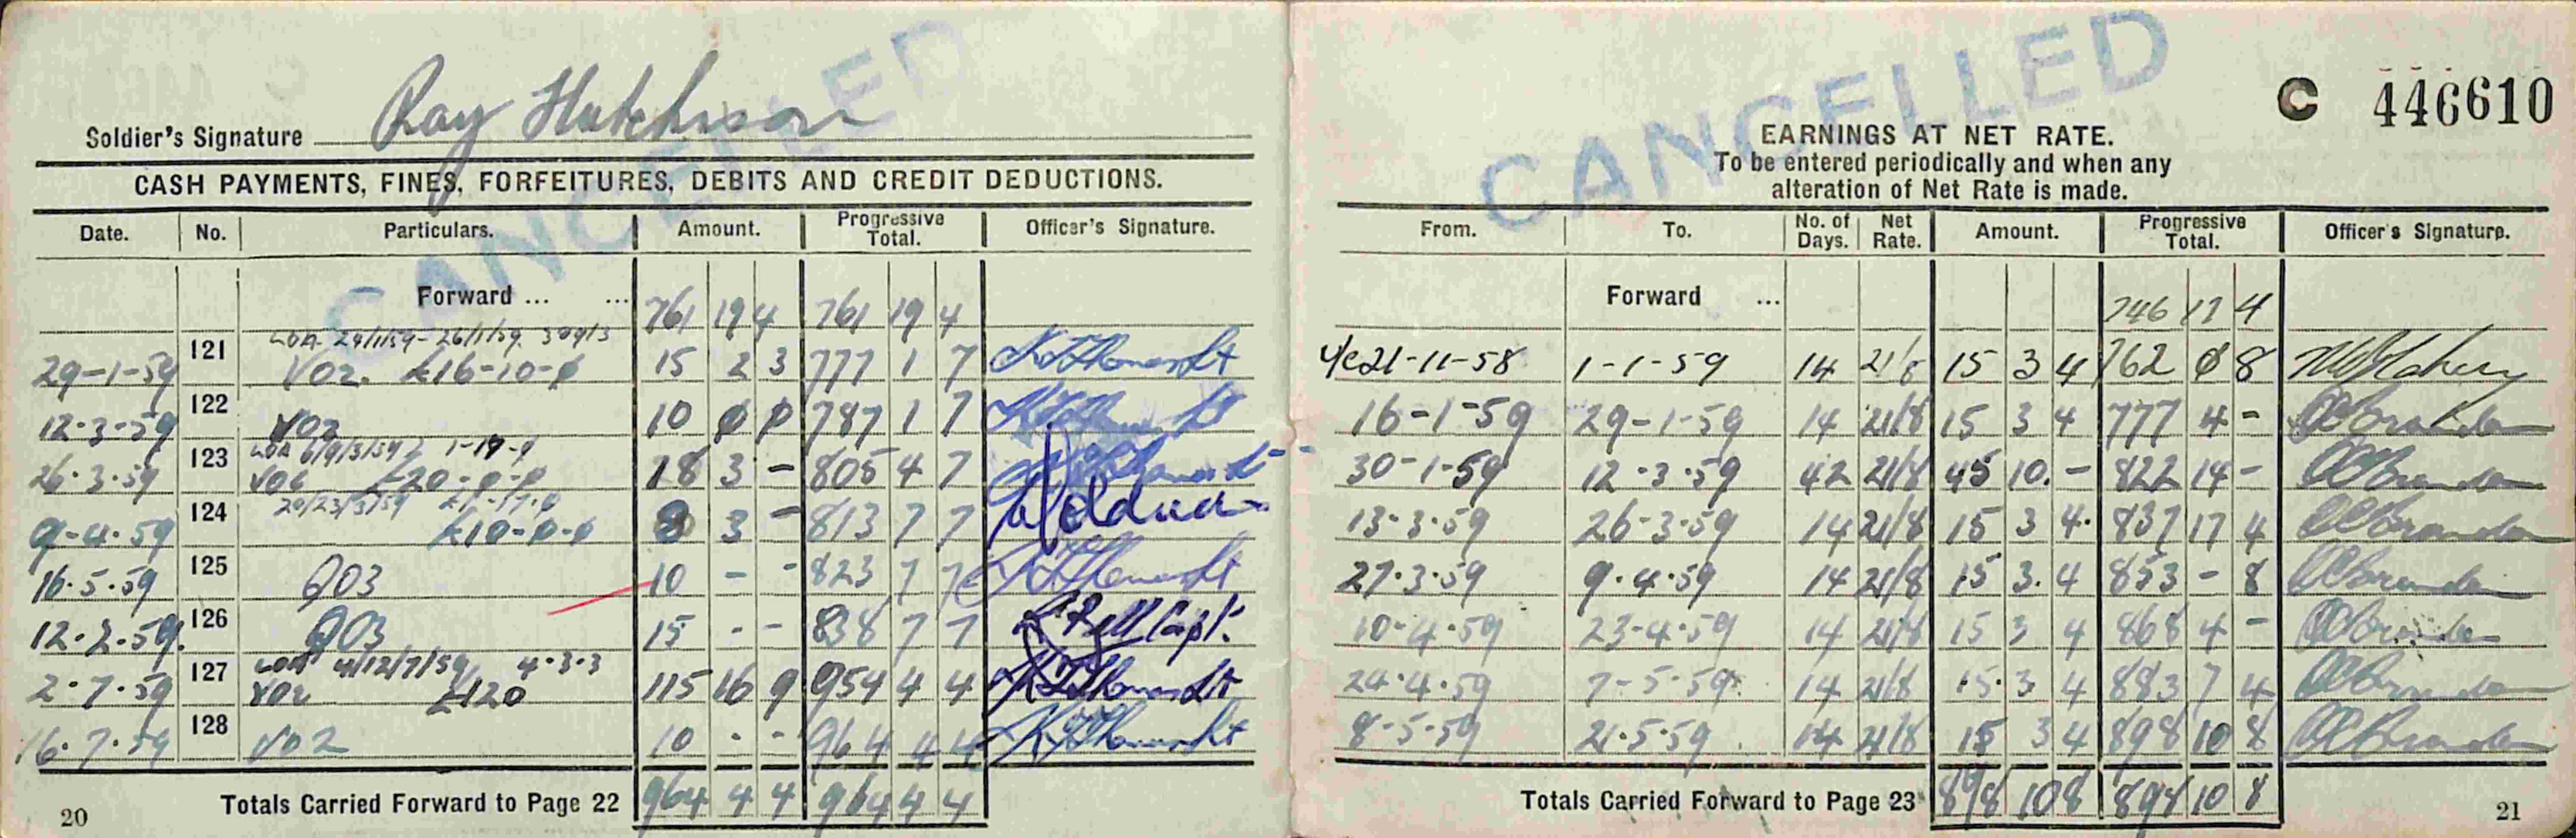 CANCELLED
Soldier's Signature Ray Hutchison
CASH PAYMENTS, FINES, FORFEITURES, DEBITS AND CREDIT DEDUCTIONS.
Date. No. Particulars. Amount. Progressive Total. Officer's Signature.
Forward ... ... 761 19 4 761 19 4
LOA 24/1/59-26/1/59
29-1-59 121 V02. £16-10-0 15 2 3 777 1 7
12-3-59 122 V02 10 0 0 787 1 7
1-19-0
26.3.59 123 V02 £20-0-0 18 3 - 805 4 7
20/23/3/59 £1-17-0
9-4.59 124 £10-0-0 8 3 - 813 7 7
16.5.59 125 Q03 10 - - 823 7 7
12.2.59. 126 Q03 15 - - 838 7 7 Capt.
LOA 4/12/7/59 4.3.3
2.7.59 127 V02 £120 115 16 9 954 4 4
16.7.59 128 V02 10 - - 964 4 4
Totals Carried Forward to Page 22 964 4 4 964 4 4
20
CANCELLED
C 446610
EARNINGS AT NET RATE.
To be entered periodically and when any
alteration of Net Rate is made.
From. To. No. of Days. Net Rate. Amount. Progressive Total. Officer's Signature.
Forward ... 746 17 4
21-11-58 1-1-59 14 21/8 15 3 4 762 0 8
16-1-59 29-1-59 14 21/8 15 3 4 777 4 -
30-1-59 12.3.59 42 21/8 45 10. - 822 14 -
13-3.59 26-3.59 14 21/8 15 3 4. 837 17 4
27.3.59 9.4.59 14 21/8 15 3. 4 853 - 8
10-4.59 23-4.59 14 21/8 15 3 4 868 4 -
24.4.59 7-5-59 14 21/8 15. 3 4 883 7 4
8-5-59 21.5.59 14 21/8 15 3 4 898 10 8
Totals Carried Forward to Page 23 898 10 8 898 10 8
21